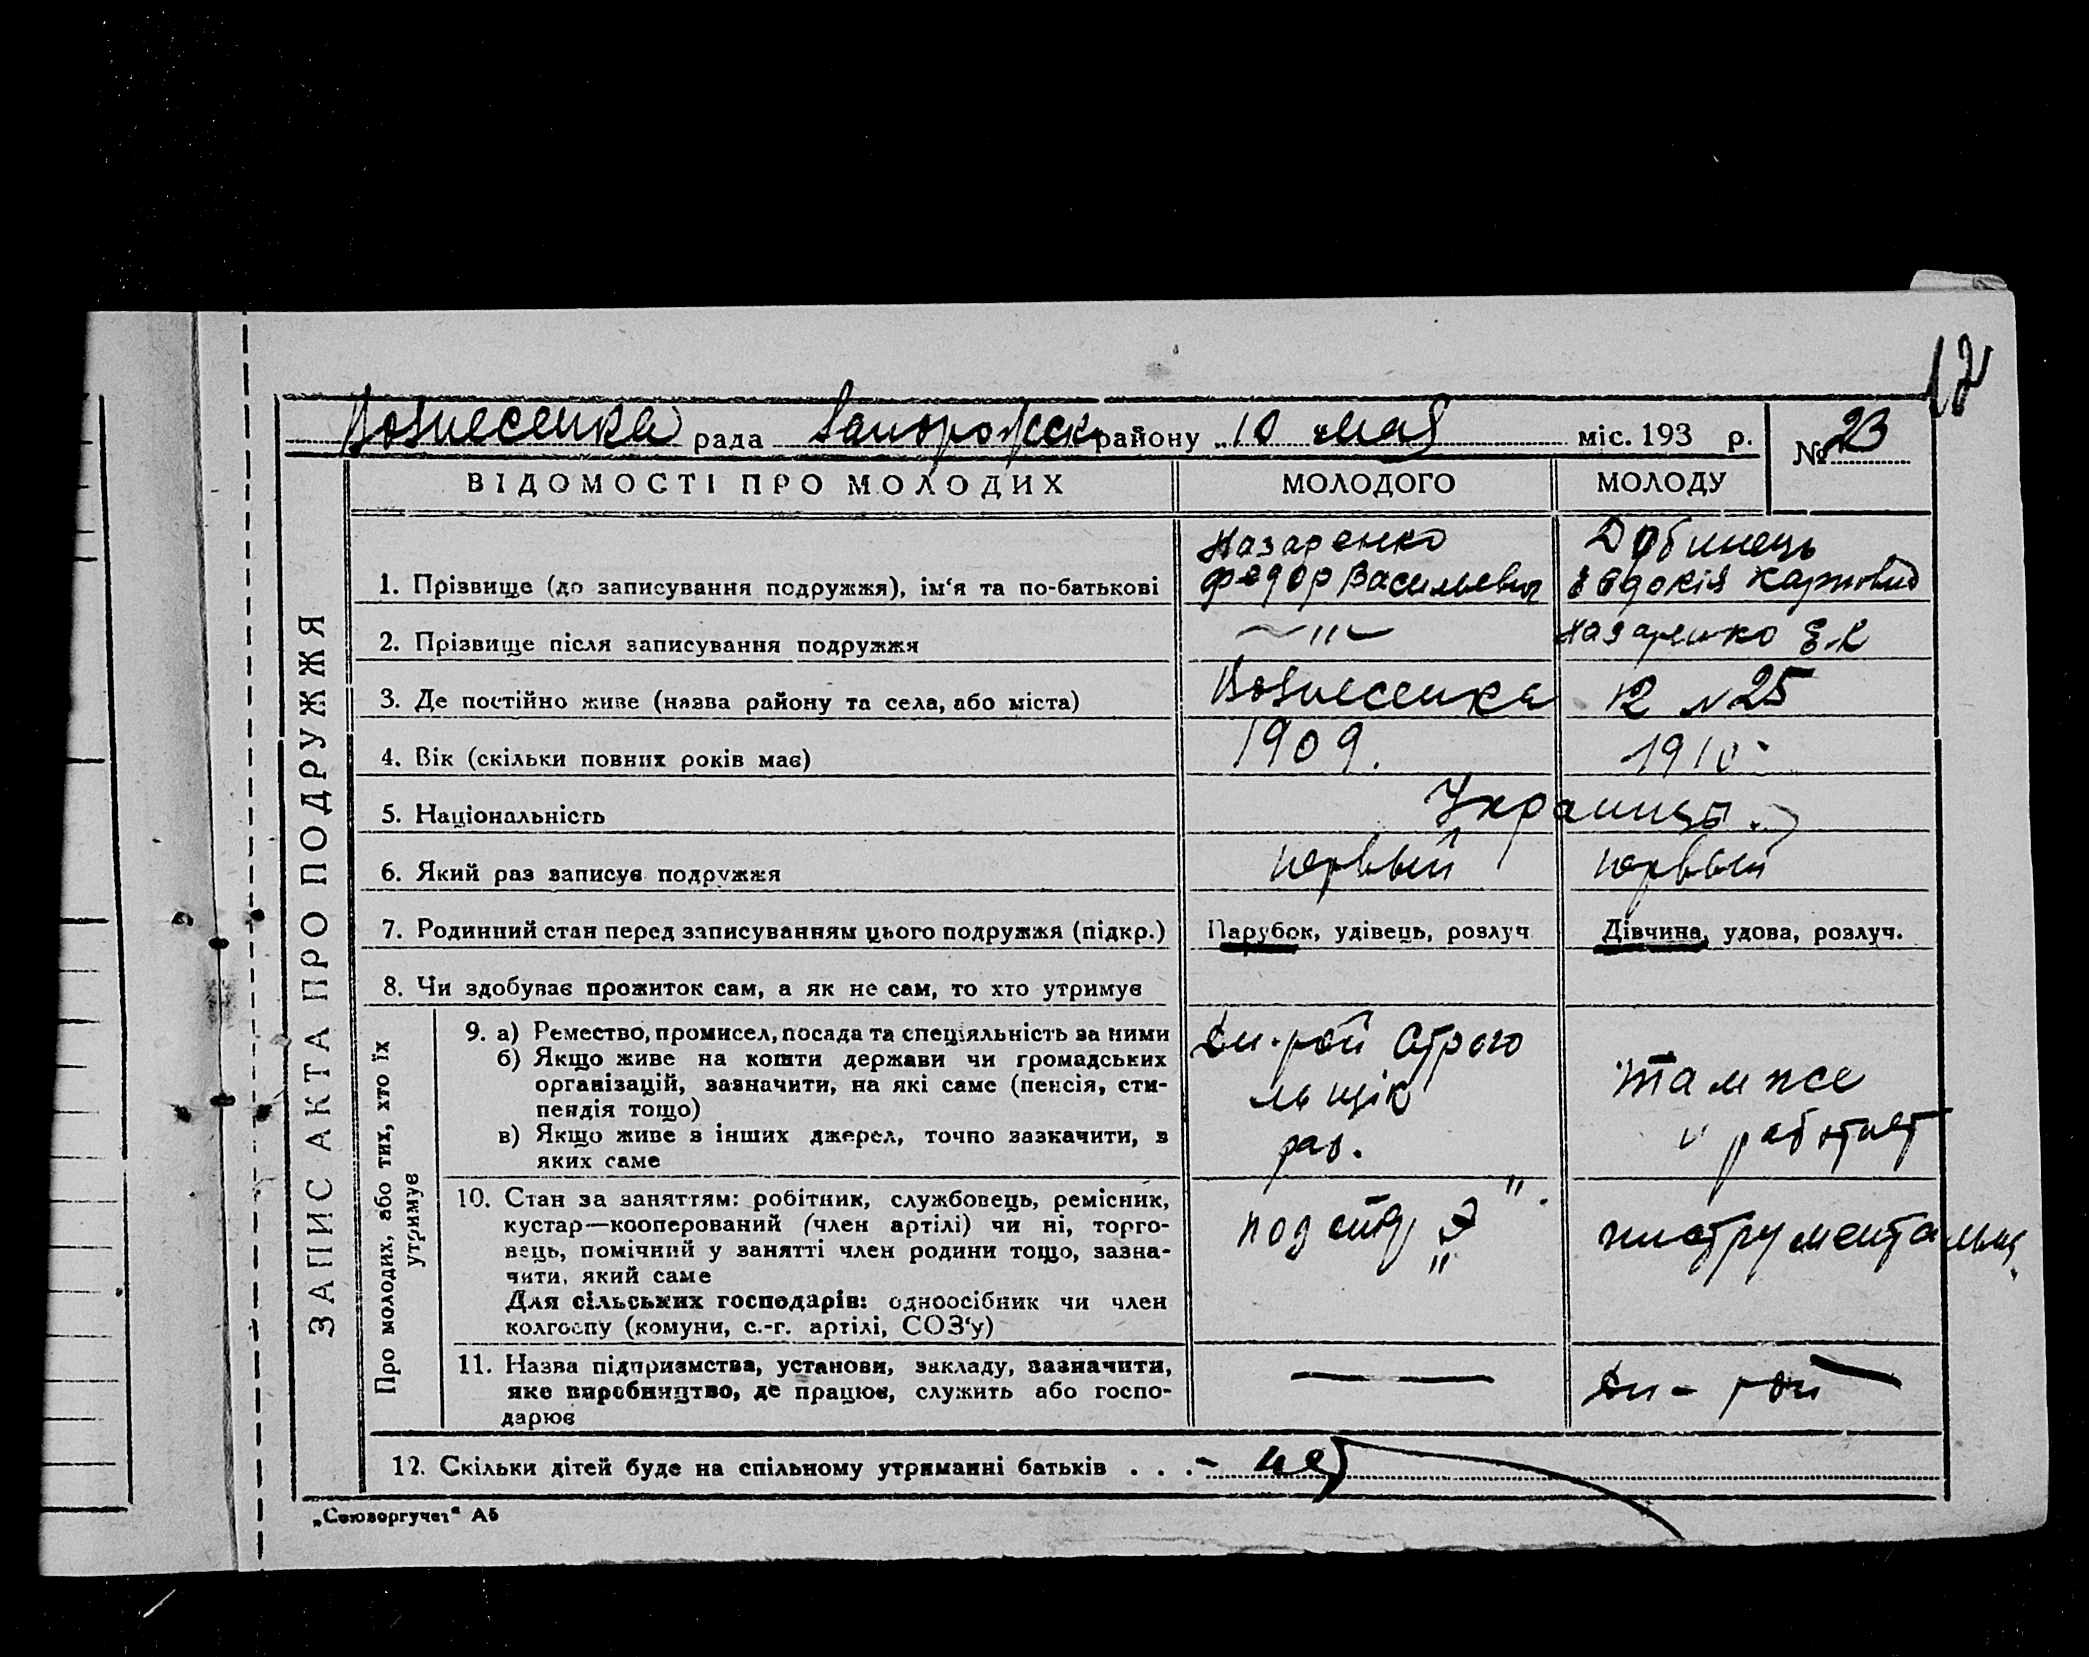 17
Вознесенка рада Запорожск району „10 мая міс. 193 р. № 23
ЗАПИС АКТА ПРО ПОДРУЖЖЯ
ВІДОМОСТІ ПРО МОЛОДИХ МОЛОДОГО МОЛОДУ
Назаренко
Федор Васильевич
Евдокія Карповна
1. Прізвище (до записування подружжя), ім'я та по-батькові
2. Прізвище після записування подружжя — " — Назаренко Е.К
3. Де постійно живе (назва району та села, або міста) Вознесенка 12 N 25
4. Вік (скільки повних років має) 1909. 1910
5. Національність Украинцы.
6. Який раз записує подружжя первый первый
7. Родинний стан перед записуванням цього подружжя (підкр.) Парубок, удівець, розлуч. Дівчина, удова, розлуч.
8. Чи здобуває прожиток сам, а як не сам, то хто утримує
Про молодих, або тих, хто їх утримує
9. а) Ремество, промисел, посада та спеціяльність за ними
б) Якщо живе на кошти держави чи громадських
організацій, зазначити, на які саме (пенсія, сти-
пендія тощо)
в) Якщо живе з інших джерел, точно зазначити, з
яких саме
Дн-рой Строго
льщік
раб.
там же
и работает
10. Стан за заняттям: робітник, службовець, ремісник,
кустар—кооперований (член артілі) чи ні, торго-
вець, помічний у занятті член родини тощо, зазна-
чити, який саме
Для сільських господарів: одноосібник чи член
колгоспу (комуни, с.-г. артілі, СОЗ'у)
инструментальщ.
11. Назва підприємства, установи, закладу, зазначити,
яке виробництво, де працює, служить або госпо-
дарює
— Дн-рой
12. Скільки дітей буде на спільному утриманні батьків . . . - нет
„Союзоргучет" А5